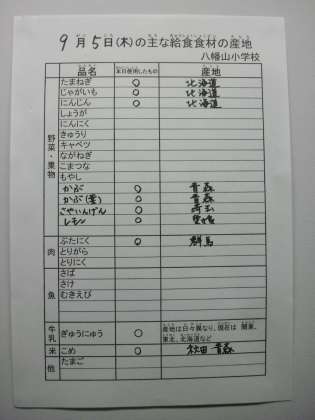 9月5日(木)の主な給食食材の産地
八幡山小学校
品名 本日使用したもの 産地
野菜・果物
たまねぎ ○ 北海道
じゃがいも ○ 北海道
にんじん ○ 北海道
しょうが
にんにく
きゅうり
キャベツ
ながねぎ
こまつな
もやし
かぶ ○ 青森
かぶ(葉) ○ 青森
さやいんげん ○ 埼玉
レモン ○ 愛媛
肉
ぶたにく ○ 群馬
とりがら
とりにく
魚
さば
さけ
むきえび
牛乳 ぎゅうにゅう ○ 産地は日々異なり、現在は 関東、
東北、北海道など
米 こめ ○ 秋田 青森
他 たまご